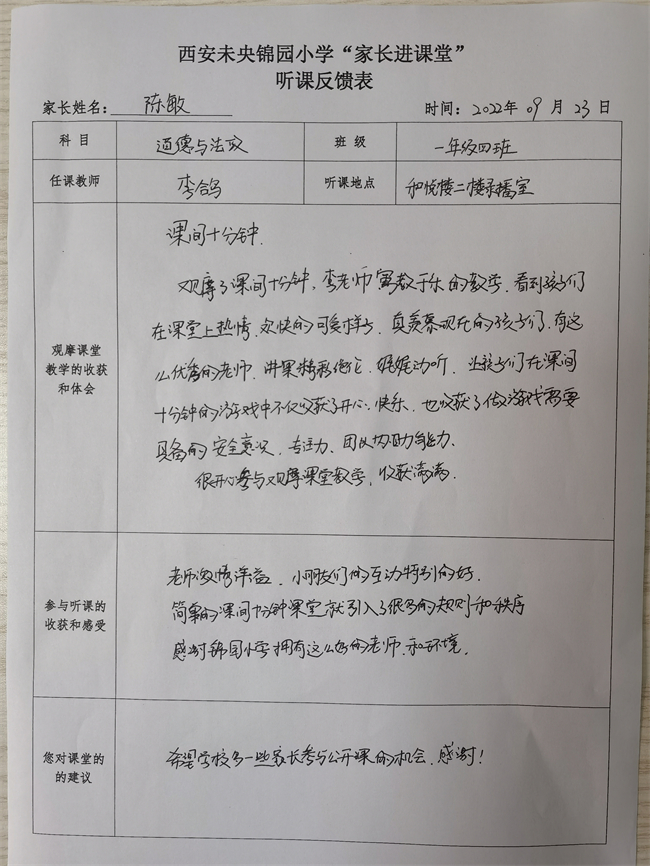 西安未央锦园小学“家长进课堂”
听课反馈表
家长姓名： 陈敏 时间：2022年 09 月 23 日
科 目 道德与法政 班 级 一年级四班
任课教师 李鸽 听课地点 和悦楼二楼录播室
观摩课堂
教学的收获
和体会
课间十分钟.
观摩了课间十分钟，李老师寓教于乐的教学，看到孩子们
在课堂上热情、欢快的可爱样子，真羡慕现在的孩子们，有这
么优秀的老师，讲课精彩绝伦，娓娓动听，让孩子们在课间
十分钟的游戏中不仅收获了开心、快乐，也收获了做游戏需要
具备的安全意识、专注力、团队协助能力、
很开心参与观摩课堂教学，收获满满.
参与听课的
收获和感受
老师激情洋益，小朋友们的互动特别的好.
简单的课间十分钟课堂就引入了很多的规则和秩序
感谢锦园小学拥有这么好的老师.和环境.
您对课堂的
的建议
希望学校多一些家长参与公开课的机会，感谢！